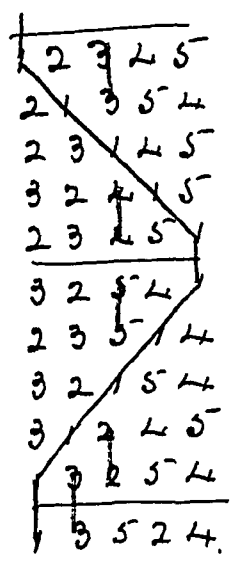 1 2 3 4 5
2 1 3 5 4
2 3 1 4 5
3 2 4 1 5
2 3 4 5 1
3 2 5 4 1
2 3 5 1 4
3 2 1 5 4
3 1 2 4 5
1 3 2 5 4
1 3 5 2 4.